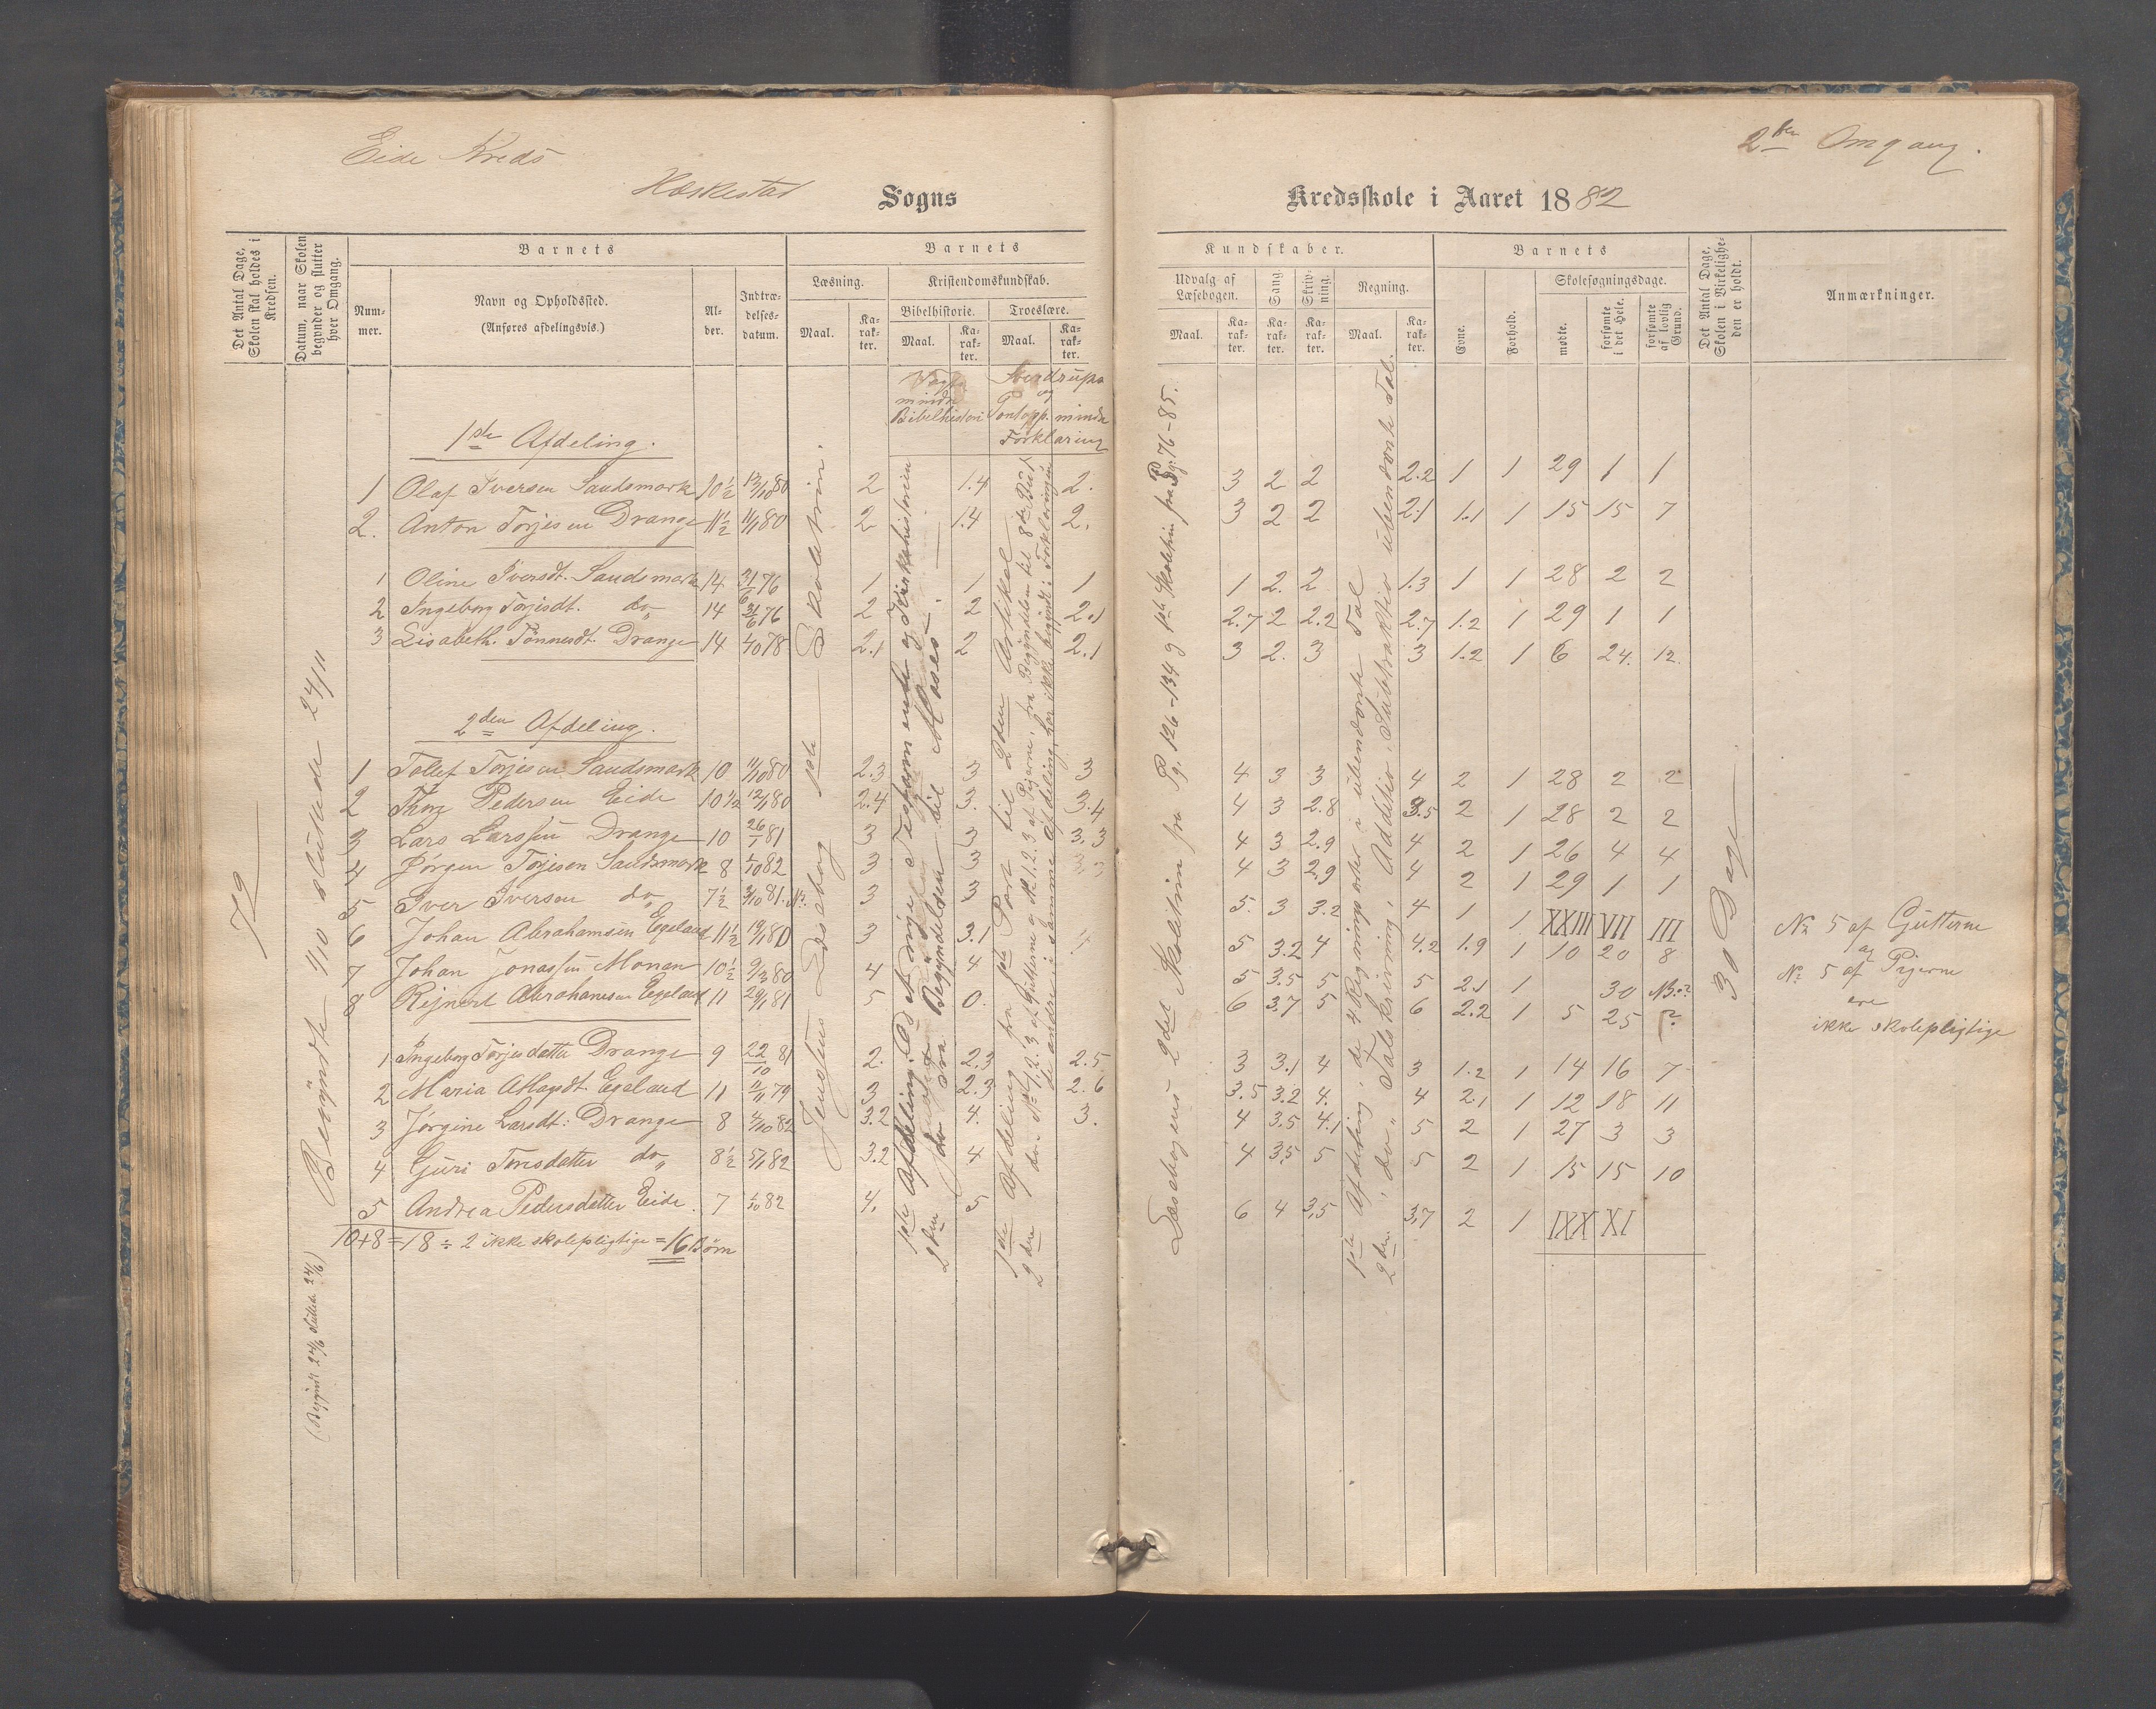 Eide Kreds
2den Omgang.
Heskestad Sogns
Kredsskole i Aaret 1882
Det Antal Dage, Skolen skal holdes i Kredsen.
Datum, naar Skolen begynder og slutter hver Omgang.
Barnets
Barnets
Kundskaber.
Barnets
Det Antal Dage, Skolen i Virkeligheden er holdt.
Anmærkninger.
Nummer.
Navn og Opholdssted.
(Anføres afdelingsvis.)
Alder.
Indtrædelsesdatum.
Læsning.
Kristendomskundskab.
Bibelhistorie.
Troeslære.
Maal.
Karakter.
Maal.
Karakter.
Maal.
Karakter.
Udvalg af Læsebogen.
Sang.
Skrivning.
Regning.
Maal.
Karakter.
Karakter.
Karakter.
Maal.
Karakter.
Evne.
Forhold.
Skolesøgningsdage.
mødte.
forsømte i det Hele.
forsømte af lovlig Grund.
Vogts mindre Bibelhistori
Sverdrups og Pontopp. mindre Forklaring
72
Begyndte 4/10 sluttede 24/11
(Begyndt 24/6 sluttet 24/6)
Jensens Læsebog 1ste Skoletrin.
1ste Afdeling. Det nye Testamente og Kirkehistorien
2den do fra Begyndelsen til Moses
1ste Afdeling fra 1ste Part til 2den Artikel
Læsebogens 2det Skoletrin fra Pg. 126-134 og 1ste Skoletrin fra Pg: 76-85.
1ste Afdeling, de 4 Regningsarter i ubenævnte Tal
2den do " Talskrivning, Addition, Subtraktion ubenævnte Tal.
30 Dage
1ste Afdeling.
1 Olaf Iversen Sandsmark 10½ 13/10 80 2 1.4 2. 3 2 2 2.2 1 1 29 1 1
2. Anton Torjesen Drange 11½ 11/1 80 2 1.4 2. 3 2 2 2.1 1.1 1 15 15 7
1 Oline Iversdt. Sandsmark 14 31/6 76 1 1 1 1 2. 2 1.3 1 1 28 2 2
2 Ingeborg Torjesdt. do 14 31/6 76 2 2 2.1 2.7 2 2.2 2.7 1.2 1 29 1 1
3 Lisabeth. Tønnesdt. Drange 14 4/10 78 2.1 2 2.1 3 2. 3 3 1.2 1 6 24. 12.
2den Afdeling.
1 Tollef Torjesen Sandsmark 10 11/10 80 2.3 3 3 4 3 3 4 2 1 28 2 2
2 Thore Pedersen Eide 10½ 12/1 80 2.4 3. 3.4 4 3 2.8 3.5 2 1 28 2 2
3 Lars Larssen Drange 10 26/1 81 3 3 3.3 4 3 2.9 4 2 1 26 4 4
4 Jørgen Torjesen Sandsmark 8 4/10 82 3 3 3 4 3 2.9 4 2 1 29 1 1
5 Iver Iversen do 7½ 3/10 81. 3 3 5. 3 3.2 4 1 1 XXIII VII III
6 Johan Abrahamsen Egeland 11½ 19/1 80 3 3.1 4 5 3.2 4 4.2 1.9 1 10 20 8
7 Johan Jonassen Monan 10½ 9/3 80 4 4 5 3.5 5 5 2.1 1 30
8 Rejnert Abrahamsen Egeland 11 29/1 81 5 0. 6 3.7 5 6 2.2 1 5 25 ?
1 Ingeborg Torjesdatter Drange 9 22/10 81 2. 2.3 2.5 3 3.1 4 3 1.2 1 14 16 7
2 Maria AMagsdt. Egeland 11 11/11 79 3 2.3 2.6 3.5 3.2 4. 4 2.1 1 12 18 11
3 Jørgine Larsdt: Drange 8 4/10 82 3.2 4. 3. 4 3.5 4.1 5 2 1 27 3 3
4 Guri Tonesdatter do 8½ 5/1 82 3.2 4 4 3.5 5 5 2 1 15 15 10
5 Andrea Pedersdatter Eide. 7 4/10 82 4. 5 6 4 3.5 3.7 2 1 IXX XI
10+8=18 ÷ 2 ikke skolepligtige = 16 Børn
No 5 af Gutterne
og
No 5 af Pigerne
ere
ikke skolepligtige